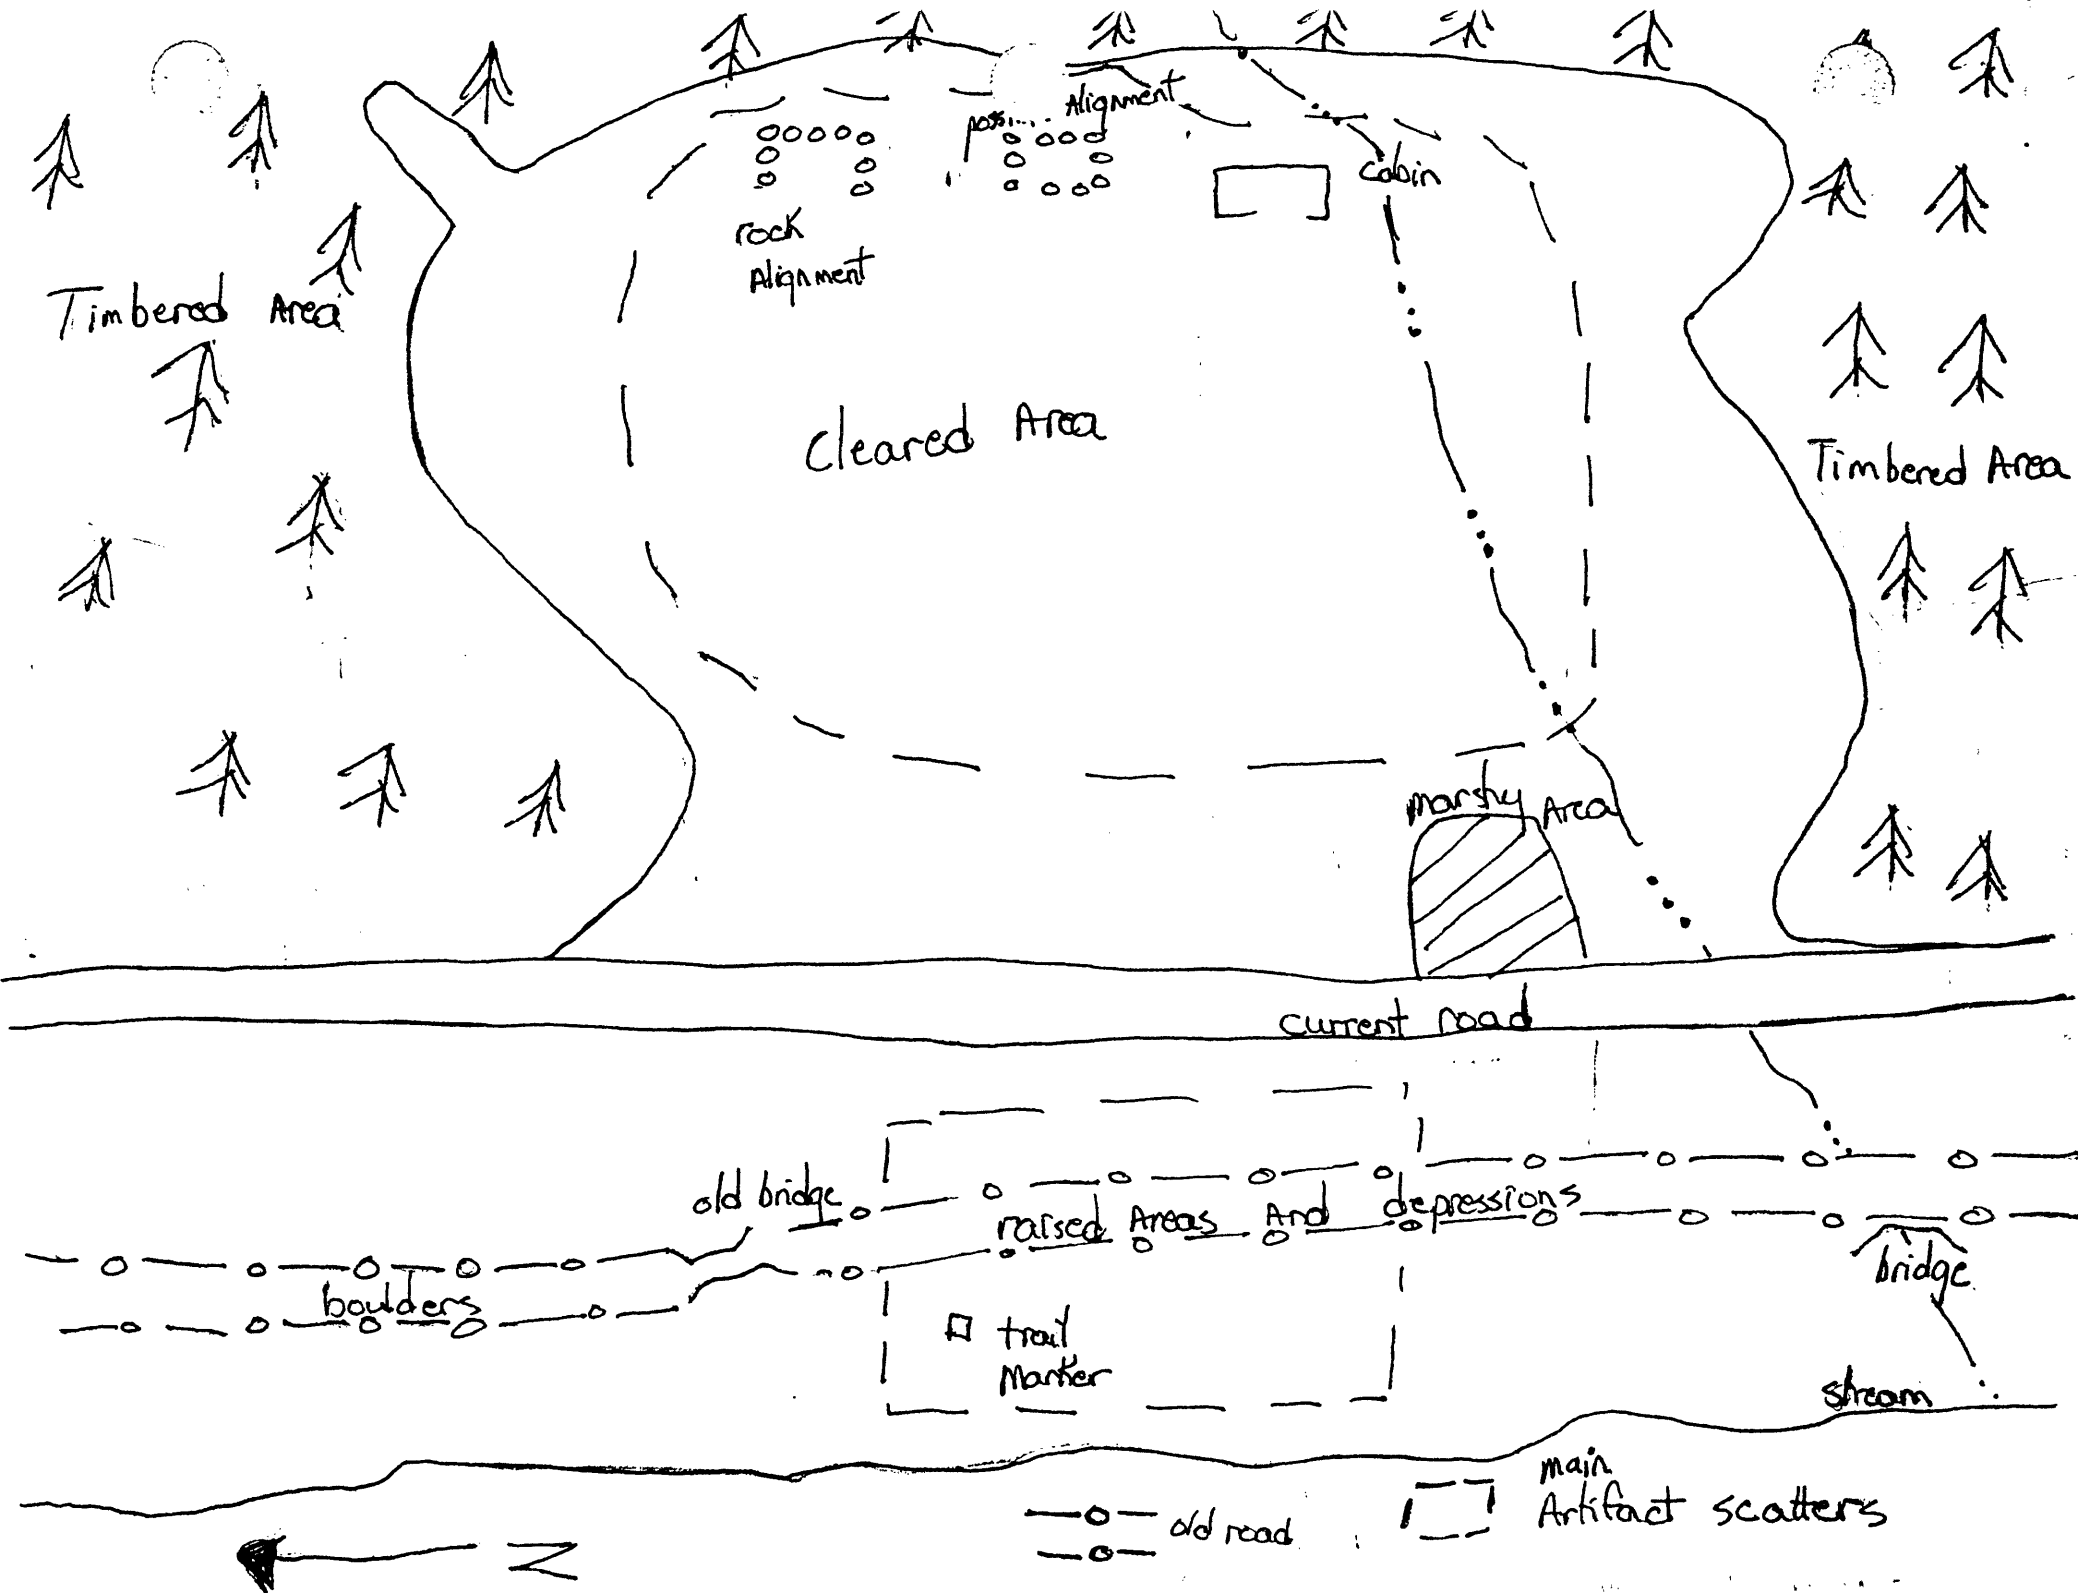 Alignment
cabin
rock
Alignment
Timbered Area
Cleared Area
Timbered Area
Marshy Area
current road
old bridge
raised Areas And depressions
bridge
boulders
trail
Marker
stream
main
Artifact scatters
old road
N